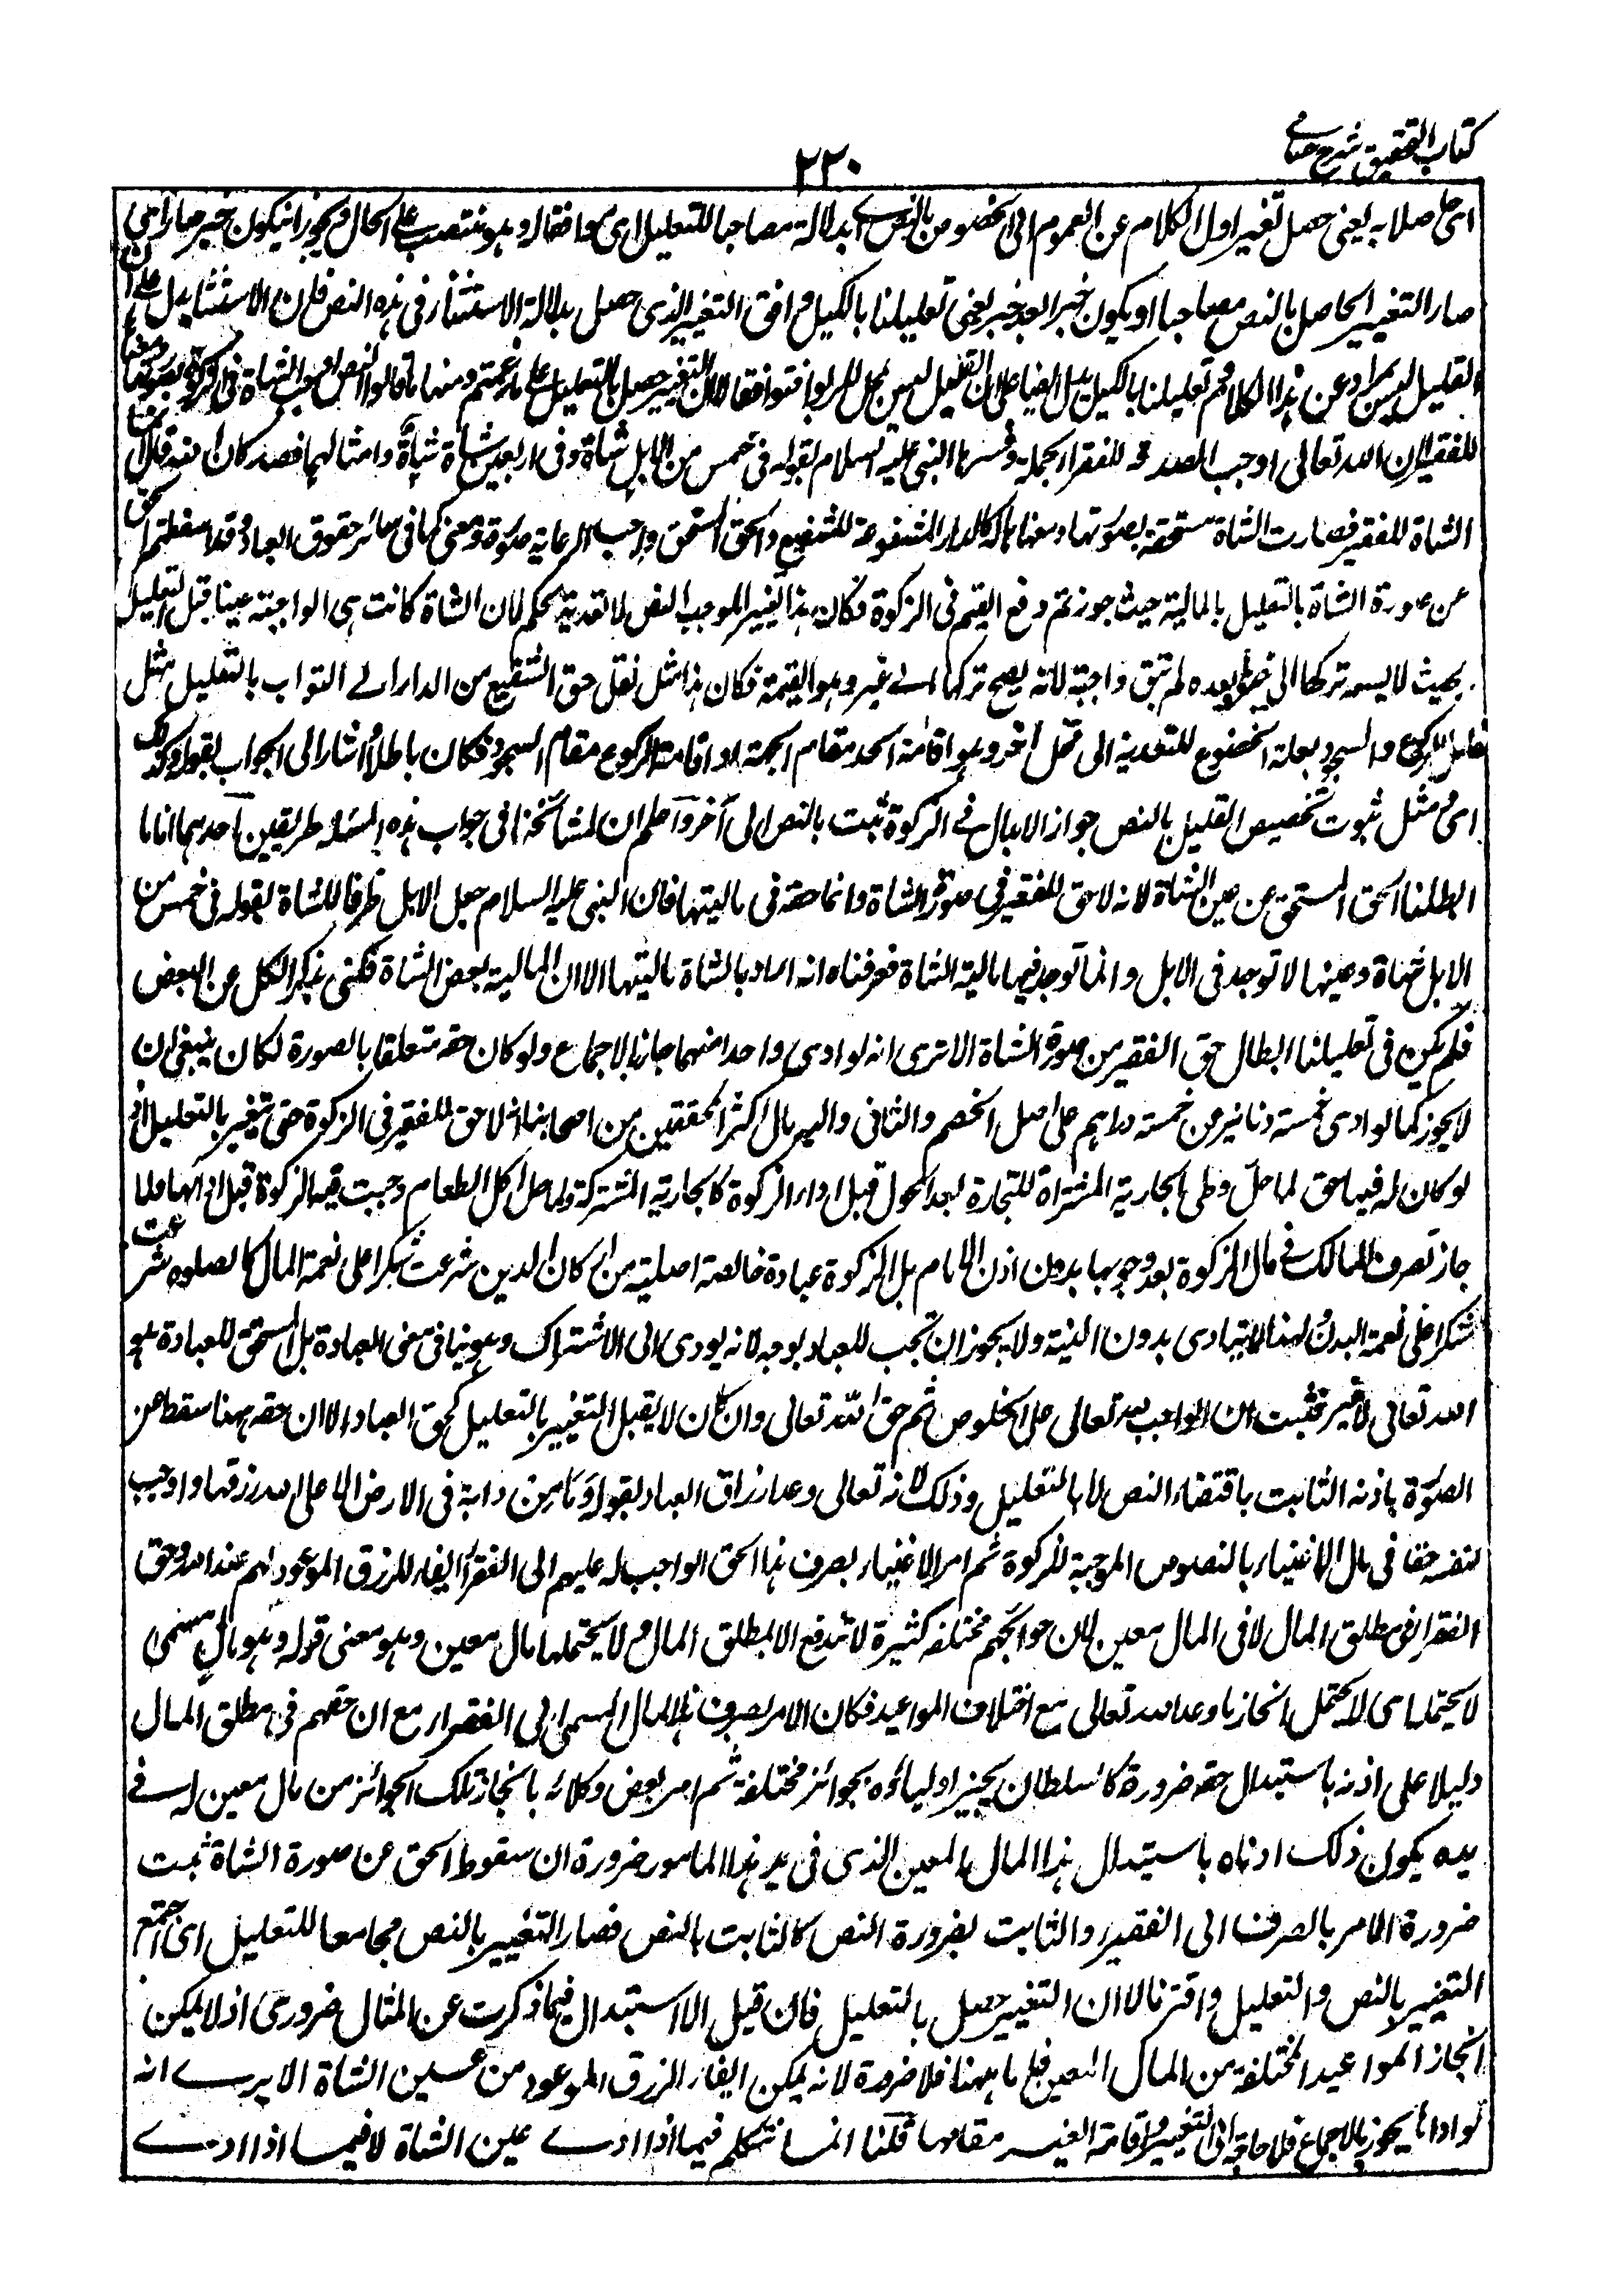 كتاب التحقيق شرح حسامى
٢٣٠
اى حاصلا به يعنى حصل تغيير اول الكلام عن العموم الى الخصوص بالنص اى بدلالة مصاحبا للتعليل اى موافقا له وهو منتصب على الحال ويجوز ان يكون خبر صار اى
صار التغيير الحاصل بالنص مصاحبا او يكون خبرا بعد خبر يعنى تعليلنا بالكيل وافق التغيير الذى حصل بدلالة الاستثناء فى هذه النص فان الاستثناء يدل على ان
القليل ليس بمراد عن هذا الكلام ثم تعليلنا بالكيل يدل ايضا على ان القليل ليس بمحل للربوا فتوافقا لا ان التغيير حصل بالتعليل على ما زعمتم ومنها ما قالوا النص اوجب الشاة فى الزكوة بصورتها ومعناها
للفقير لان الله تعالى اوجب الصدقة للفقراء مجملة وفسرها النبى عليه السلام بقوله فى خمس من الابل شاة وفى اربعين شاة شاة وامثالهما فصار كان الله قال ان
الشاة للفقير فصارت الشاة مستحقة بصورتها ومعناها له كالدار المشفوعة للشفيع والحق المستحق واجب الرعاية صورة ومعنى كما فى سائر حقوق العباد وقد اسقطتم الحق
عن صورة الشاة بالتعليل بالمالية حيث جوزتم دفع القيم فى الزكوة فكان هذا تغييرا لموجب النص لا تعدية لحكمه لان الشاة كانت هى الواجبة عينا قبل التعليل
بحيث لا يسعه تركها الى غيرها وبعده لم تبق واجبة لانه يصح تركها الى غير وهو القيمة فكان هذا مثل نقل حق الشفيع من الدار الى الثواب بالتعليل مثل
تعليل الركوع والسجود بعلة الخضوع للتعدية الى محل آخر وهو اقامة الخد مقام الجبهة او اقامة الركوع مقام السجود فكان باطلا اشار الى الجواب بقوله وكذلك
اى مثل ثبوت تخصيص القليل بالنص جواز الابدال فى الزكوة ثبت بالنص الى آخره واعلم ان لمشائخنا فى جواب هذه المسئلة طريقين احدهما انا ما
ابطلنا الحق المستحق عن عين الشاة لانه لا حق للفقير فى صورة الشاة وانما حقه فى ماليتها فان النبى عليه السلام جعل الابل ظرفا للشاة بقوله فى خمس من
الابل شاة وعينها لا توجد فى الابل وانما توجد فيها مالية الشاة فعرفنا انه اراد بالشاة ماليتها الا ان المالية بعض الشاة فكنى بذكر الكل عن البعض
فلم يكن فى تعليلنا ابطال حق الفقير من صورة الشاة الا ترى انه لو ادى واحدا منهما جاز بالاجماع ولو كان حقه متعلقا بالصورة لكان ينبغى ان
لا يجوز كما لو ادى خمسة دنانير عن خمسة دراهم على اصل الخصم والثانى واليه مال اكثر المحققين من اصحابنا انه لا حق للفقير فى الزكوة حتى يتغير بالتعليل اذ
لو كان له فيها حق لما حل وطى الجارية المشتراة للتجارة بعد الحول قبل اداء الزكوة كالجارية المشتركة ولما حل اكل الطعام وجبت فيه الزكوة قبل ادائها ولما
جاز تصرف المالك فى مال الزكوة بعد وجوبها بدون اذن الامام بل الزكوة عبادة خالصة اصلية من اركان الدين شرعت شكرا على نعمة المال كالصلوة شرعت
شكرا على نعمة البدن ولهذا لا يتادى بدون النية ولا يجوز ان تجب للعباد بوجه لانه يودى الى الاشتراك وهو ينافى معنى العبادة بل المستحق للعبادة هو
الله تعالى لا غير فثبت ان الواجب لله تعالى على الخلوص ثم حق الله تعالى وان كان لا يقبل التغيير بالتعليل كحق العباد الا ان حقه ههنا سقط عن
الصورة باذنه الثابت باقتضاء النص لا بالتعليل وذلك لانه تعالى وعد ارزاق العباد بقوله وما من دابة فى الارض الا على الله رزقها واوجب
لنفسه حقا فى مال الاغنياء بالنصوص الموجبة للزكوة ثم امر الاغنياء بصرف هذا الحق الواجب له عليهم الى الفقراء ايفاء للرزق الموعود لهم عند الله وحق
الفقراء فى مطلق المال لا فى المال معين لان حوائجهم مختلفة كثيرة لا تندفع الا بمطلق المال ولا يحتملها مال معين وهو معنى قوله وهو مال مسمى
لا يحتمله اى لا يحتمل انجاز ما وعد الله تعالى مع اختلاف المواعيد فكان الامر بصرف هذا المال المسمى الى الفقراء مع ان حقهم فى مطلق المال
دليلا على اذنه باستبدال حقه ضرورة كالسلطان يجيز اولياؤه بجوائز مختلفة ثم امر بعض وكلائه بانجاز تلك الجوائز من مال معين له فى
يده يكون ذلك اذناه باستبدال هذا المال المعين الذى فى يد هذا المامور ضرورة ان سقوط الحق عن صورة الشاة ثبت
ضرورة الامر بالصرف الى الفقير والثابت بضرورة النص كالثابت بالنص فصار التغيير بالنص مجامعا للتعليل اى اجتمع
التغيير بالنص والتعليل واقترنا لا ان التغيير حصل بالتعليل فان قيل الا استبدال فيما ذكرت عن المثال ضرورى اذ لا يمكن
انجاز المواعيد المختلفة من المال المعين فاما ههنا فلا ضرورة لانه يمكن ايفاء الرزق الموعود من عين الشاة الا يرى انه
لو اداها يجوز بالاجماع فلا حاجة الى التغيير واقامة الغير مقامها قلنا انما نتكلم فيما اذا ادى عين الشاة لا فيما اذا ادى